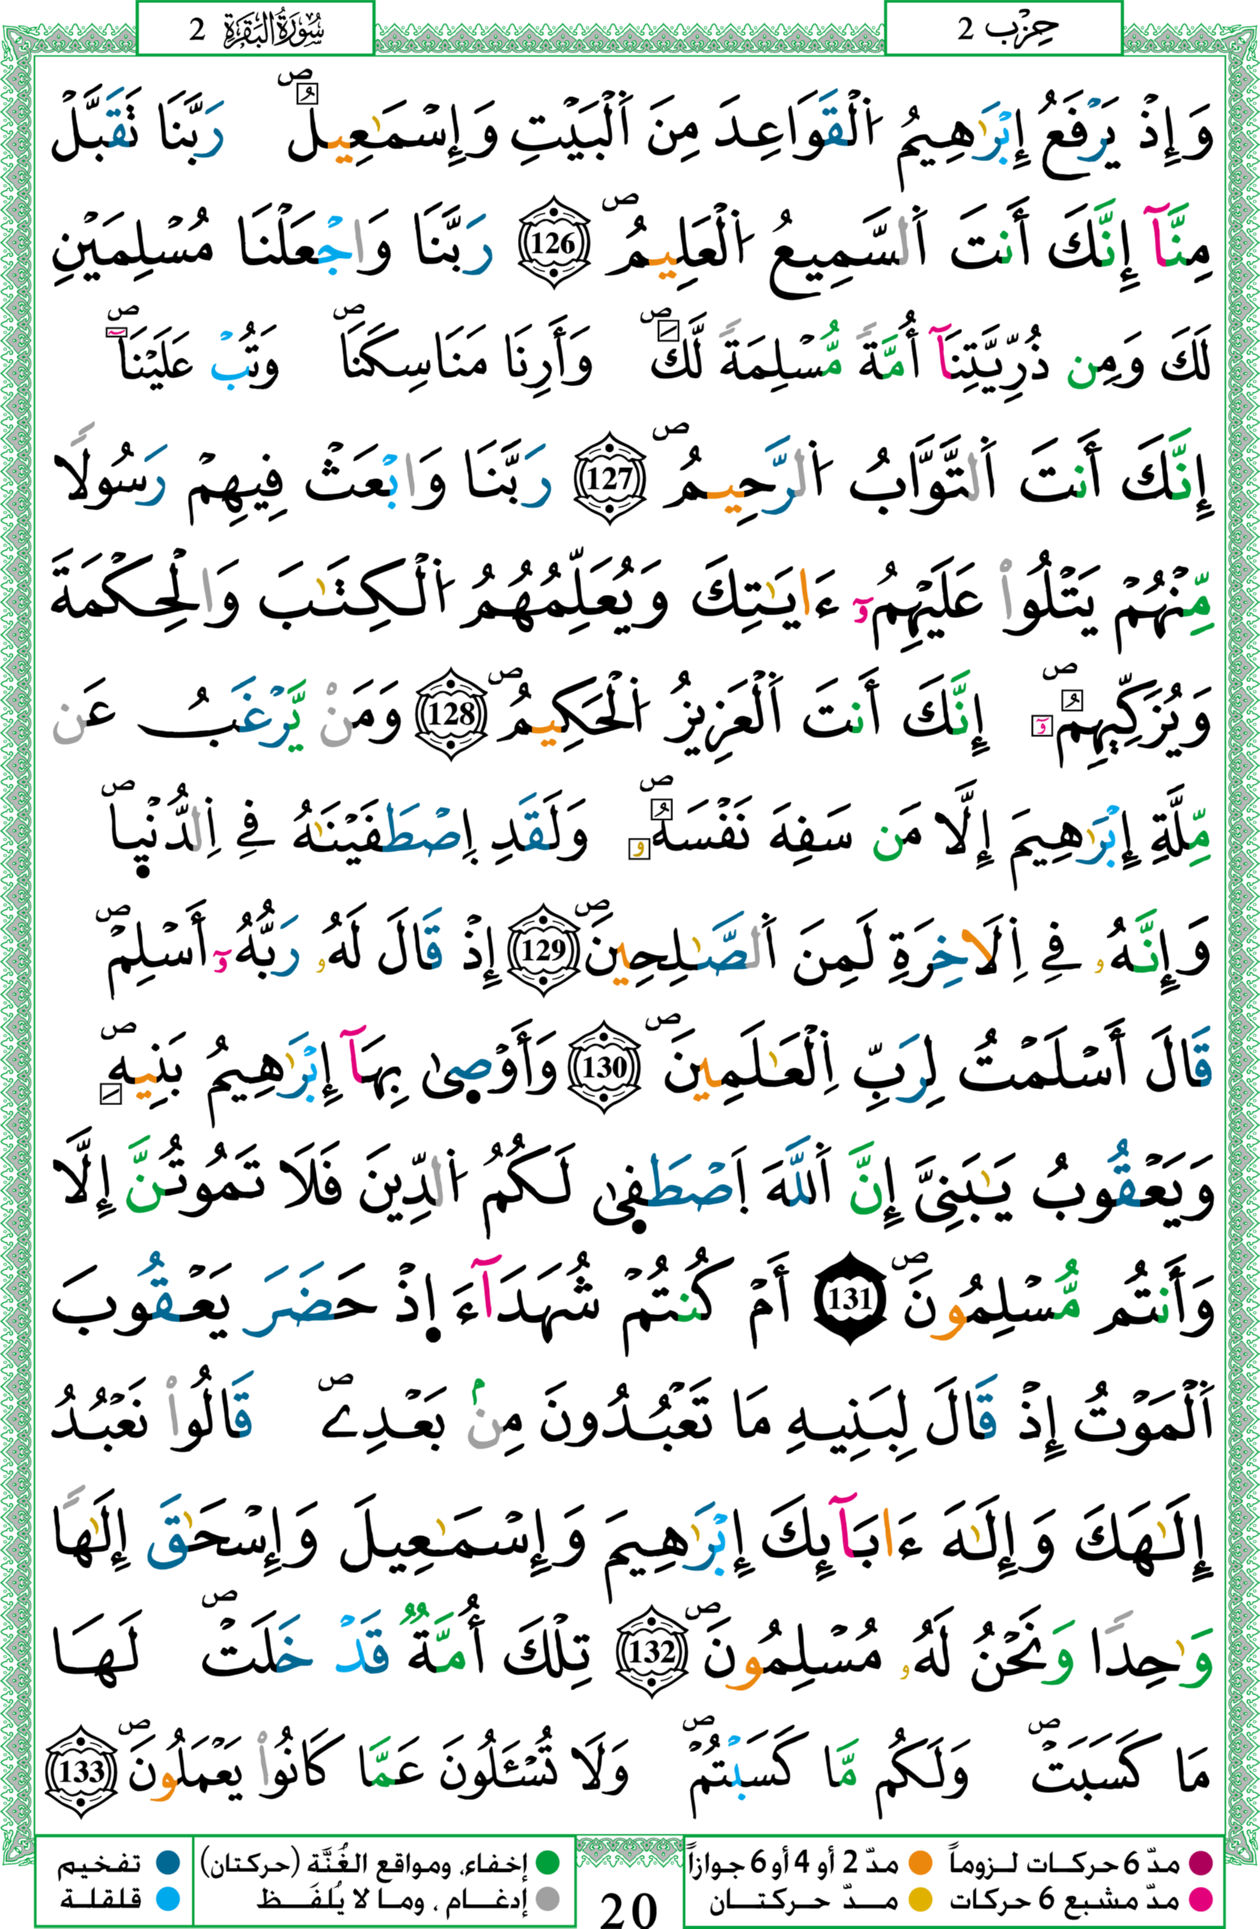 حِزْب 2
سُورَةُ البَقَرَةِ 2
وَإِذْ يَرْفَعُ إِبْرَٰهِيمُ اُ۬لْقَوَاعِدَ مِنَ اَ۬لْبَيْتِ وَإِسْمَٰعِيلُۖ رَبَّنَا تَقَبَّلْ
مِنَّآ إِنَّكَ أَنتَ اَ۬لسَّمِيعُ اُ۬لْعَلِيمُۖ 126 رَبَّنَا وَاجْعَلْنَا مُسْلِمَيْنِ
لَكَ وَمِن ذُرِّيَّتِنَآ أُمَّةً مُّسْلِمَةً لَّكَۖ وَأَرِنَا مَنَاسِكَنَاۖ وَتُبْ عَلَيْنَآۖ
إِنَّكَ أَنتَ اَ۬لتَّوَّابُ اُ۬لرَّحِيمُۖ 127 رَبَّنَا وَابْعَثْ فِيهِمْ رَسُولًا
مِّنْهُمْ يَتْلُوا۟ عَلَيْهِمُۥٓ ءَايَٰتِكَ وَيُعَلِّمُهُمُ اُ۬لْكِتَٰبَ وَالْحِكْمَةَ
وَيُزَكِّيهِمُۥٓۖ إِنَّكَ أَنتَ اَ۬لْعَزِيزُ اُ۬لْحَكِيمُۖ 128 وَمَنْ يَّرْغَبُ عَن
مِّلَّةِ إِبْرَٰهِيمَ إِلَّا مَن سَفِهَ نَفْسَهُۥۖ وَلَقَدِ اِ۪صْطَفَيْنَٰهُ فِے اِ۬لدُّنْي۪اۖ
وَإِنَّهُۥ فِے اِ۬لَاخِرَةِ لَمِنَ اَ۬لصَّٰلِحِينَۖ 129 إِذْ قَالَ لَهُۥ رَبُّهُۥٓ أَسْلِمْۖ
قَالَ أَسْلَمْتُ لِرَبِّ اِ۬لْعَٰلَمِينَۖ 130 وَأَوْص۪ىٰ بِهَآ إِبْرَٰهِيمُ بَنِيهِۖ
وَيَعْقُوبُ يَٰبَنِىَّ إِنَّ اَ۬للَّهَ اَ۪صْطَف۪ىٰ لَكُمُ اُ۬لدِّينَ فَلَا تَمُوتُنَّ إِلَّا
وَأَنتُم مُّسْلِمُونَۖ 131 أَمْ كُنتُمْ شُهَدَآءَ ا۪ذْ حَضَرَ يَعْقُوبَ
اَ۬لْمَوْتُ إِذْ قَالَ لِبَنِيهِ مَا تَعْبُدُونَ مِنۢ بَعْدِےۖ قَالُوا۟ نَعْبُدُ
إِلَٰهَكَ وَإِلَٰهَ ءَابَآئِكَ إِبْرَٰهِيمَ وَإِسْمَٰعِيلَ وَإِسْحَٰقَ إِلَٰهًا
وَٰحِدًا وَنَحْنُ لَهُۥ مُسْلِمُونَۖ 132 تِلْكَ أُمَّةٌ قَدْ خَلَتْۖ لَهَا
مَا كَسَبَتْۖ وَلَكُم مَّا كَسَبْتُمْۖ وَلَا تُسْـَٔلُونَ عَمَّا كَانُوا۟ يَعْمَلُونَۖ 133
مدّ 6 حركات لـزوماً مدّ 2 أو 4 أو 6 جوازاً
مدّ مشبع 6 حركات مـدّ حركتـان
إخفاء، ومواقع الغُنَّة (حركتان) تفخيم
إدغـام ، ومـا لا يُلفَـظ قلقلـة
20